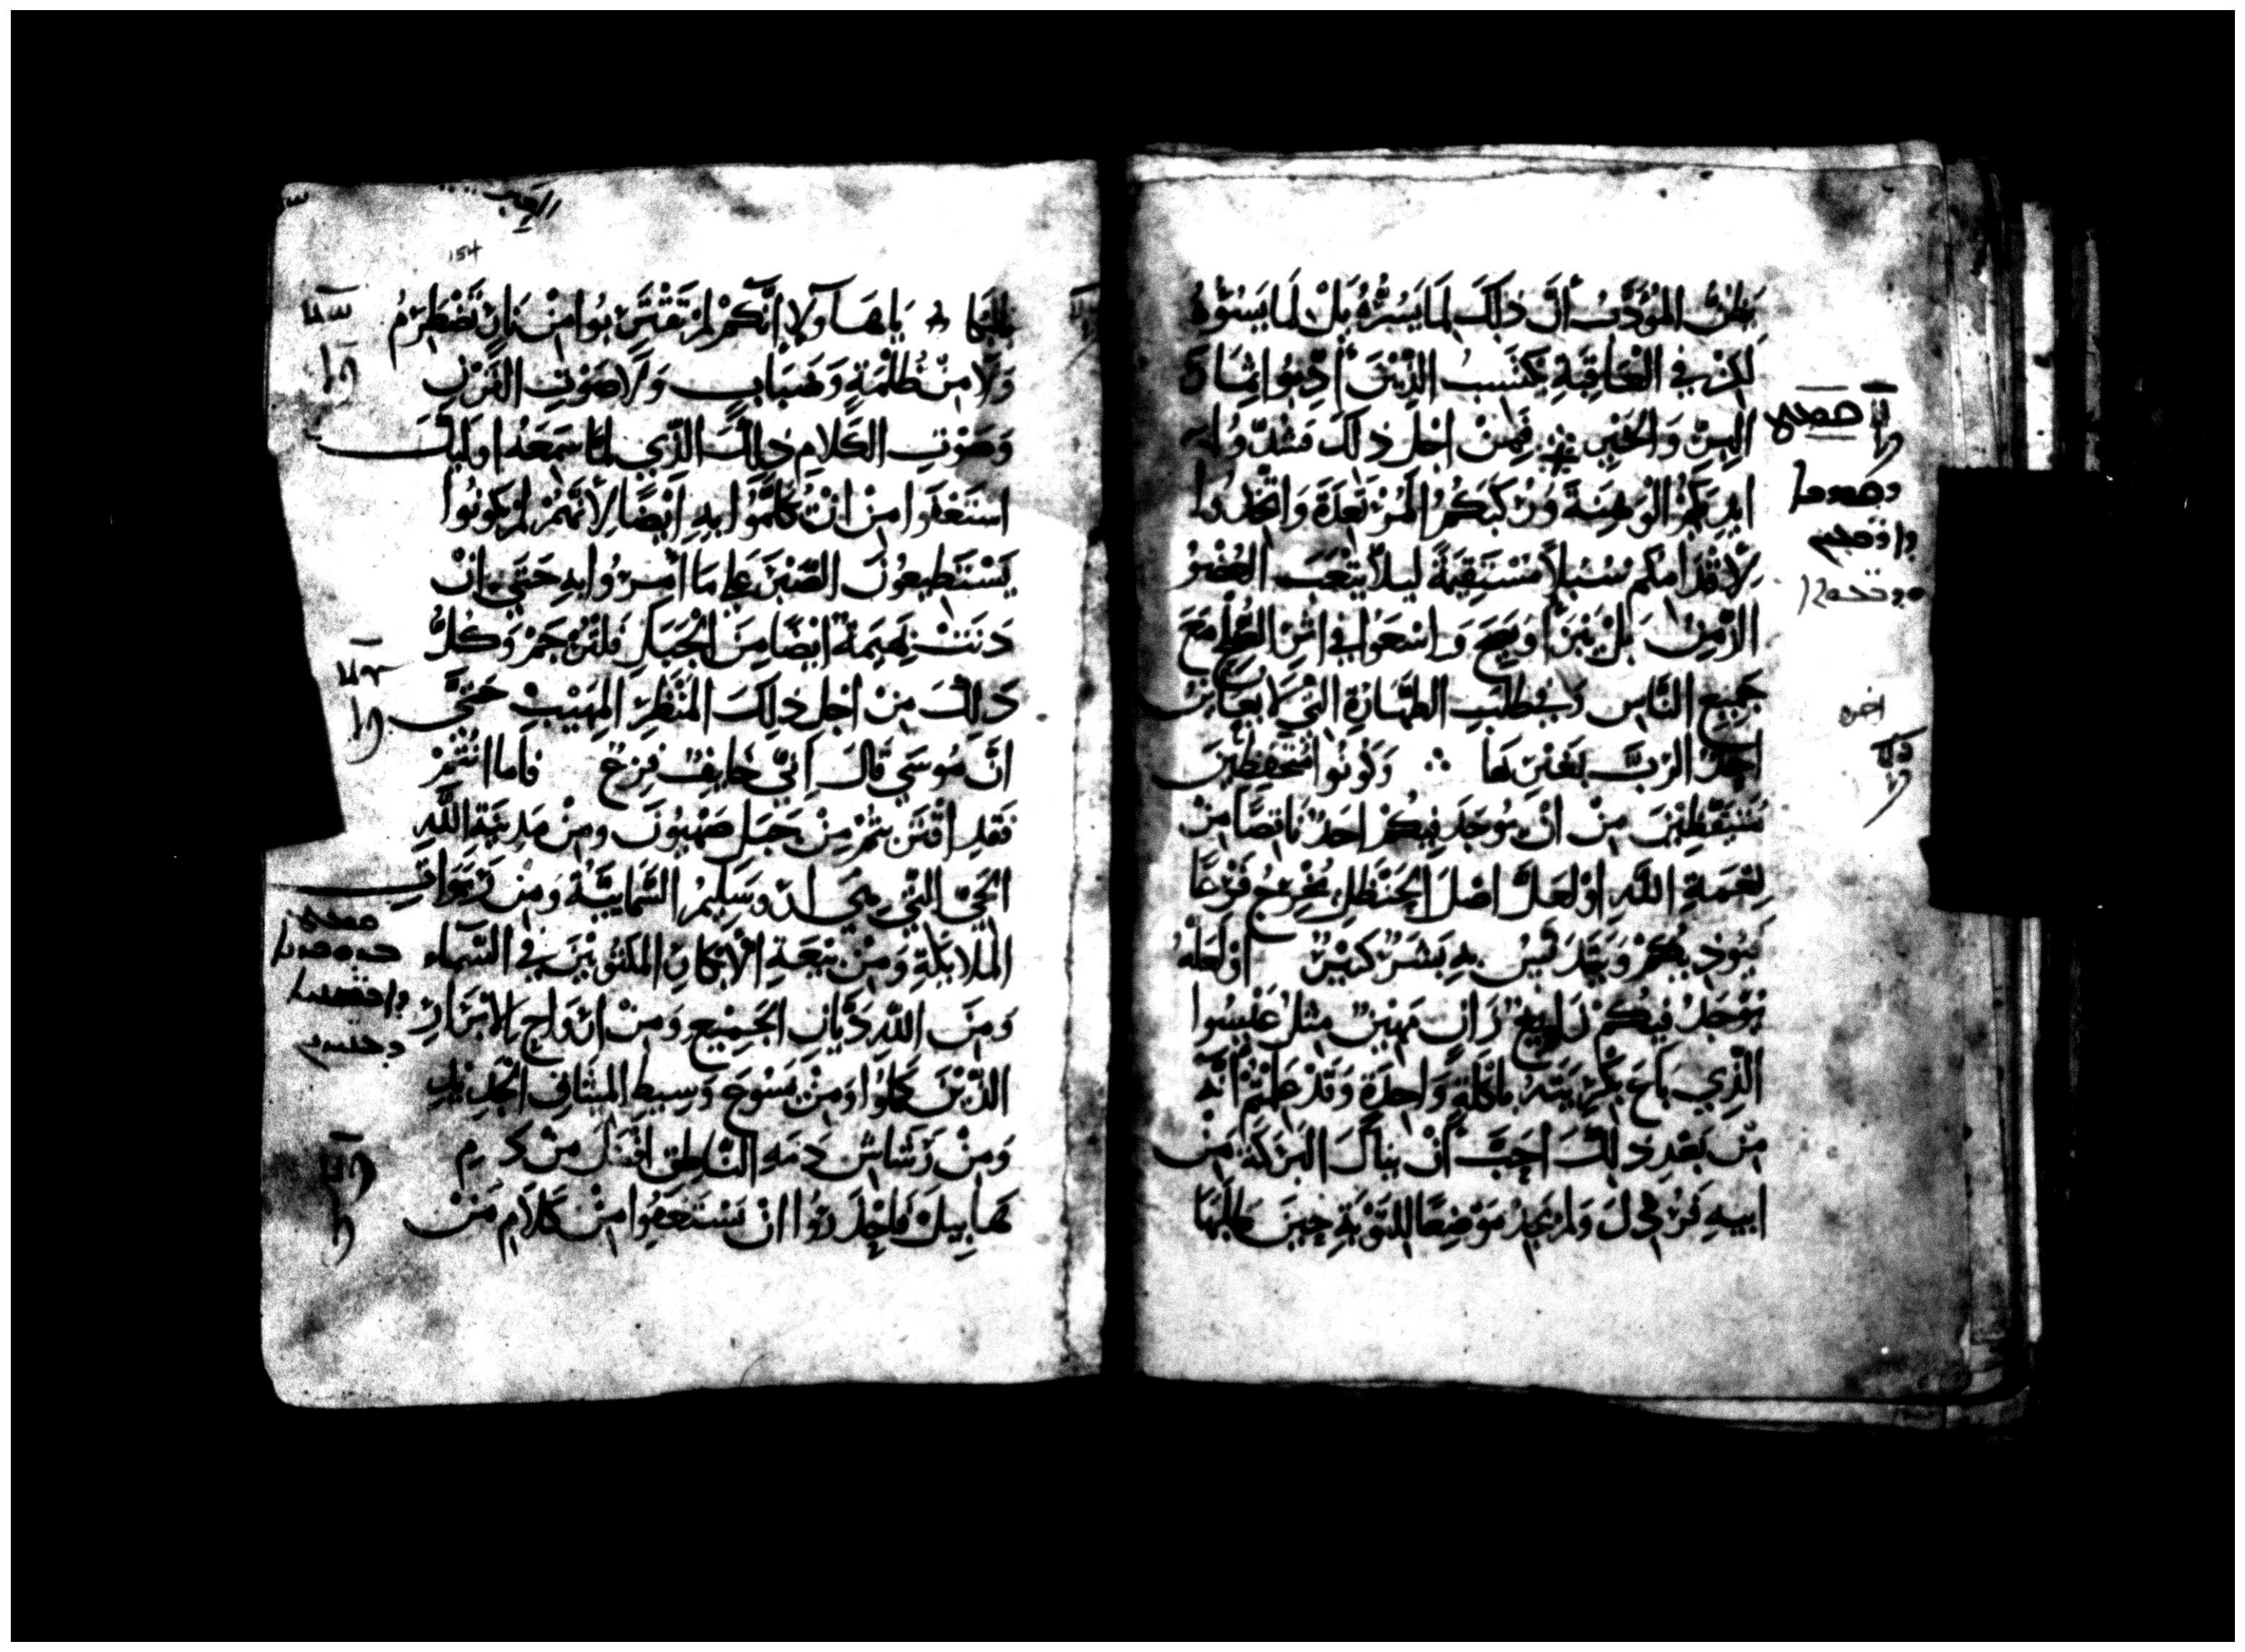 يظن المؤدب أن ذلك لما يسره بل لما يسوه
لكن في العاقبة يكسب الذين ادبوا بها ثمار
البر والخير فمن اجل ذلك فشدوا
ايديكم الوهنة وركبكم المرتعدة واتخذوا
لاقدامكم سبلا مستقيمة ليلا يتعب العضو
الزمن بل يبرا ويصح واسعوا في اثر الصلح مع
جميع الناس وفي طلب الطهارة التي لا يعاين
احد الرب بغيرها وكونوا متحفظين
متيقظين من ان يوجد فيكم احد ناقصا من
نعمة الله او لعل اصل الحنظل يخرج فرعا
فيوذيكم ويتدنس به بشر كثير او لعله
يوجد فيكم زان مهين مثل عيسوا
الذي باع بكريته باكلة واحدة وقد علمتم انه
من بعد ذلك احب ان ينال البركة من
ابيه فرذل ولم يجد موضعا للتوبة حين طلبها
154
بالبكا يا هاولا انكم لم تقتربوا من نار تضطرم
ولا من ظلمة وضباب ولا صوت القرن
وصوت الكلام ذلك الذي لما سمعه اوليك
استعفوا من ان تكلموا به ايضا لانهم لم يكونوا
يستطيعون الصبر على ما امروا به حتى ان
دنت بهيمة ايضا من الجبل فلترجم وكل
ذلك من اجل ذلك المنظر المهيب حتى
ان موسى قال اني خايف فزع فاما انتم
فقد اقتربتم من جبل صهيون ومن مدينة الله
الحي التي هي اورشليم السمايية ومن ربوات
الملايكة ومن بيعة الابكار المكتوبين في السماء
ومن الله ديان الجميع ومن ارواح الابرار
الذين كملوا ومن يسوع وسيط الميثاق الجديد
ومن رشاش دمه الناطق افضل من دم
هابيل فاحذروا ان تستعفوا من كلام من